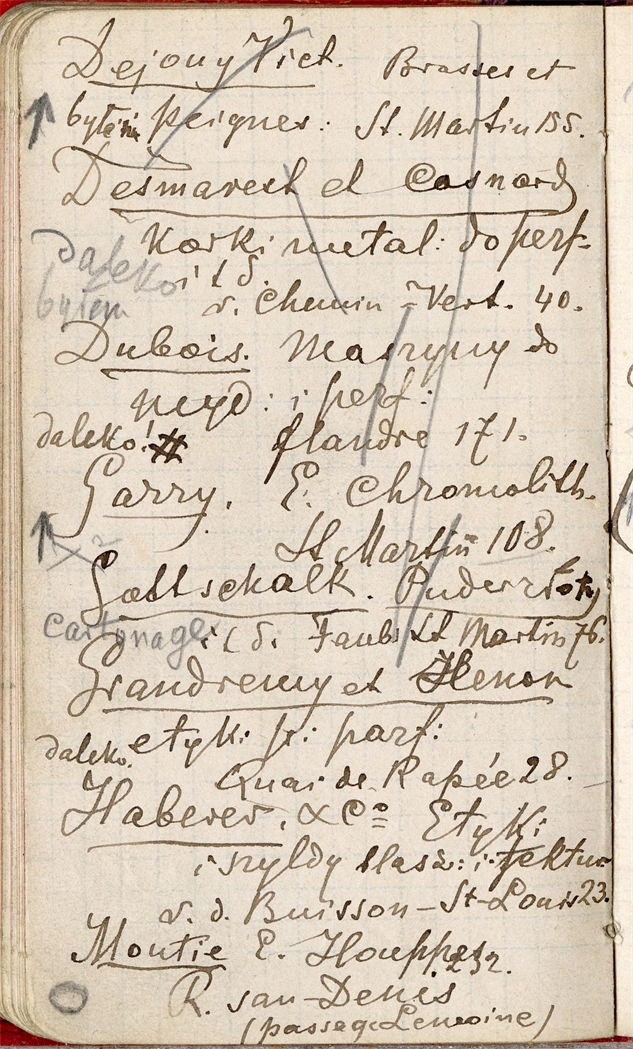 Dejouy Vict. Brasses et
byłem Peignes: St. Martin 155.
Desmarest et Casnard
Korki metal: do perf-
daleko i t d.
byłem r. Chemin-Vert. 40.
Dubois. Maszyny do
mydł: i perf:
daleko! # flandre 171.
Garry. E. Chromolith.
St Martin 108.
Gottschalk. Puder złoty
Cartonage i t d. Faub: St Martin 76.
Grandremy et Henon
etyk: pr: parf:
daleko. Quai de Rapée 28.
Haberer, & Co Etyki
i szyldy blasz: i tektur
r. d. Buisson-St-Louis 23.
Montie E. 232.
R. San-Denis
(passage Lemoine)